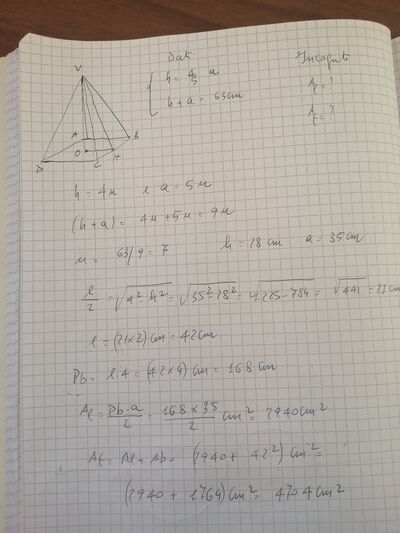 Dati Incognite
h = 4/5 a Aℓ = ?
h + a = 63 cm At = ?
V
A B
O H
D C
h = 4u e a = 5u
(h+a) = 4u + 5u = 9u
u = 63/9 = 7 h = 28 cm a = 35 cm
ℓ/2 = √a² - h² = √35² - 28² = √1225 - 784 = √441 = 21 cm
ℓ = (21×2) cm = 42 cm
Pb = ℓ·4 = (42×4) cm = 168 cm
Aℓ = Pb·a/2 = 168×35/2 cm² = 2940 cm²
At = Aℓ + Ab = (2940 + 42²) cm² =
(2940 + 1764) cm² = 4704 cm²